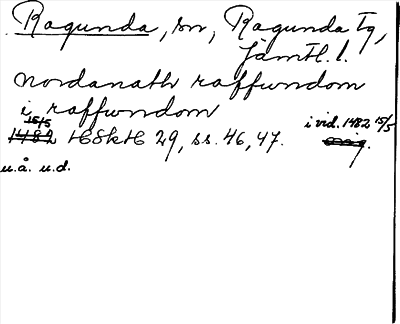 Ragunda, sn, Ragunda tg,
Jämtl. l.
nordanath raffwndom
i raffwndom
15/5
1482 HSkH 29, ss. 46, 47. i vid. 1482 15/5
orig.
u.å. u.d.